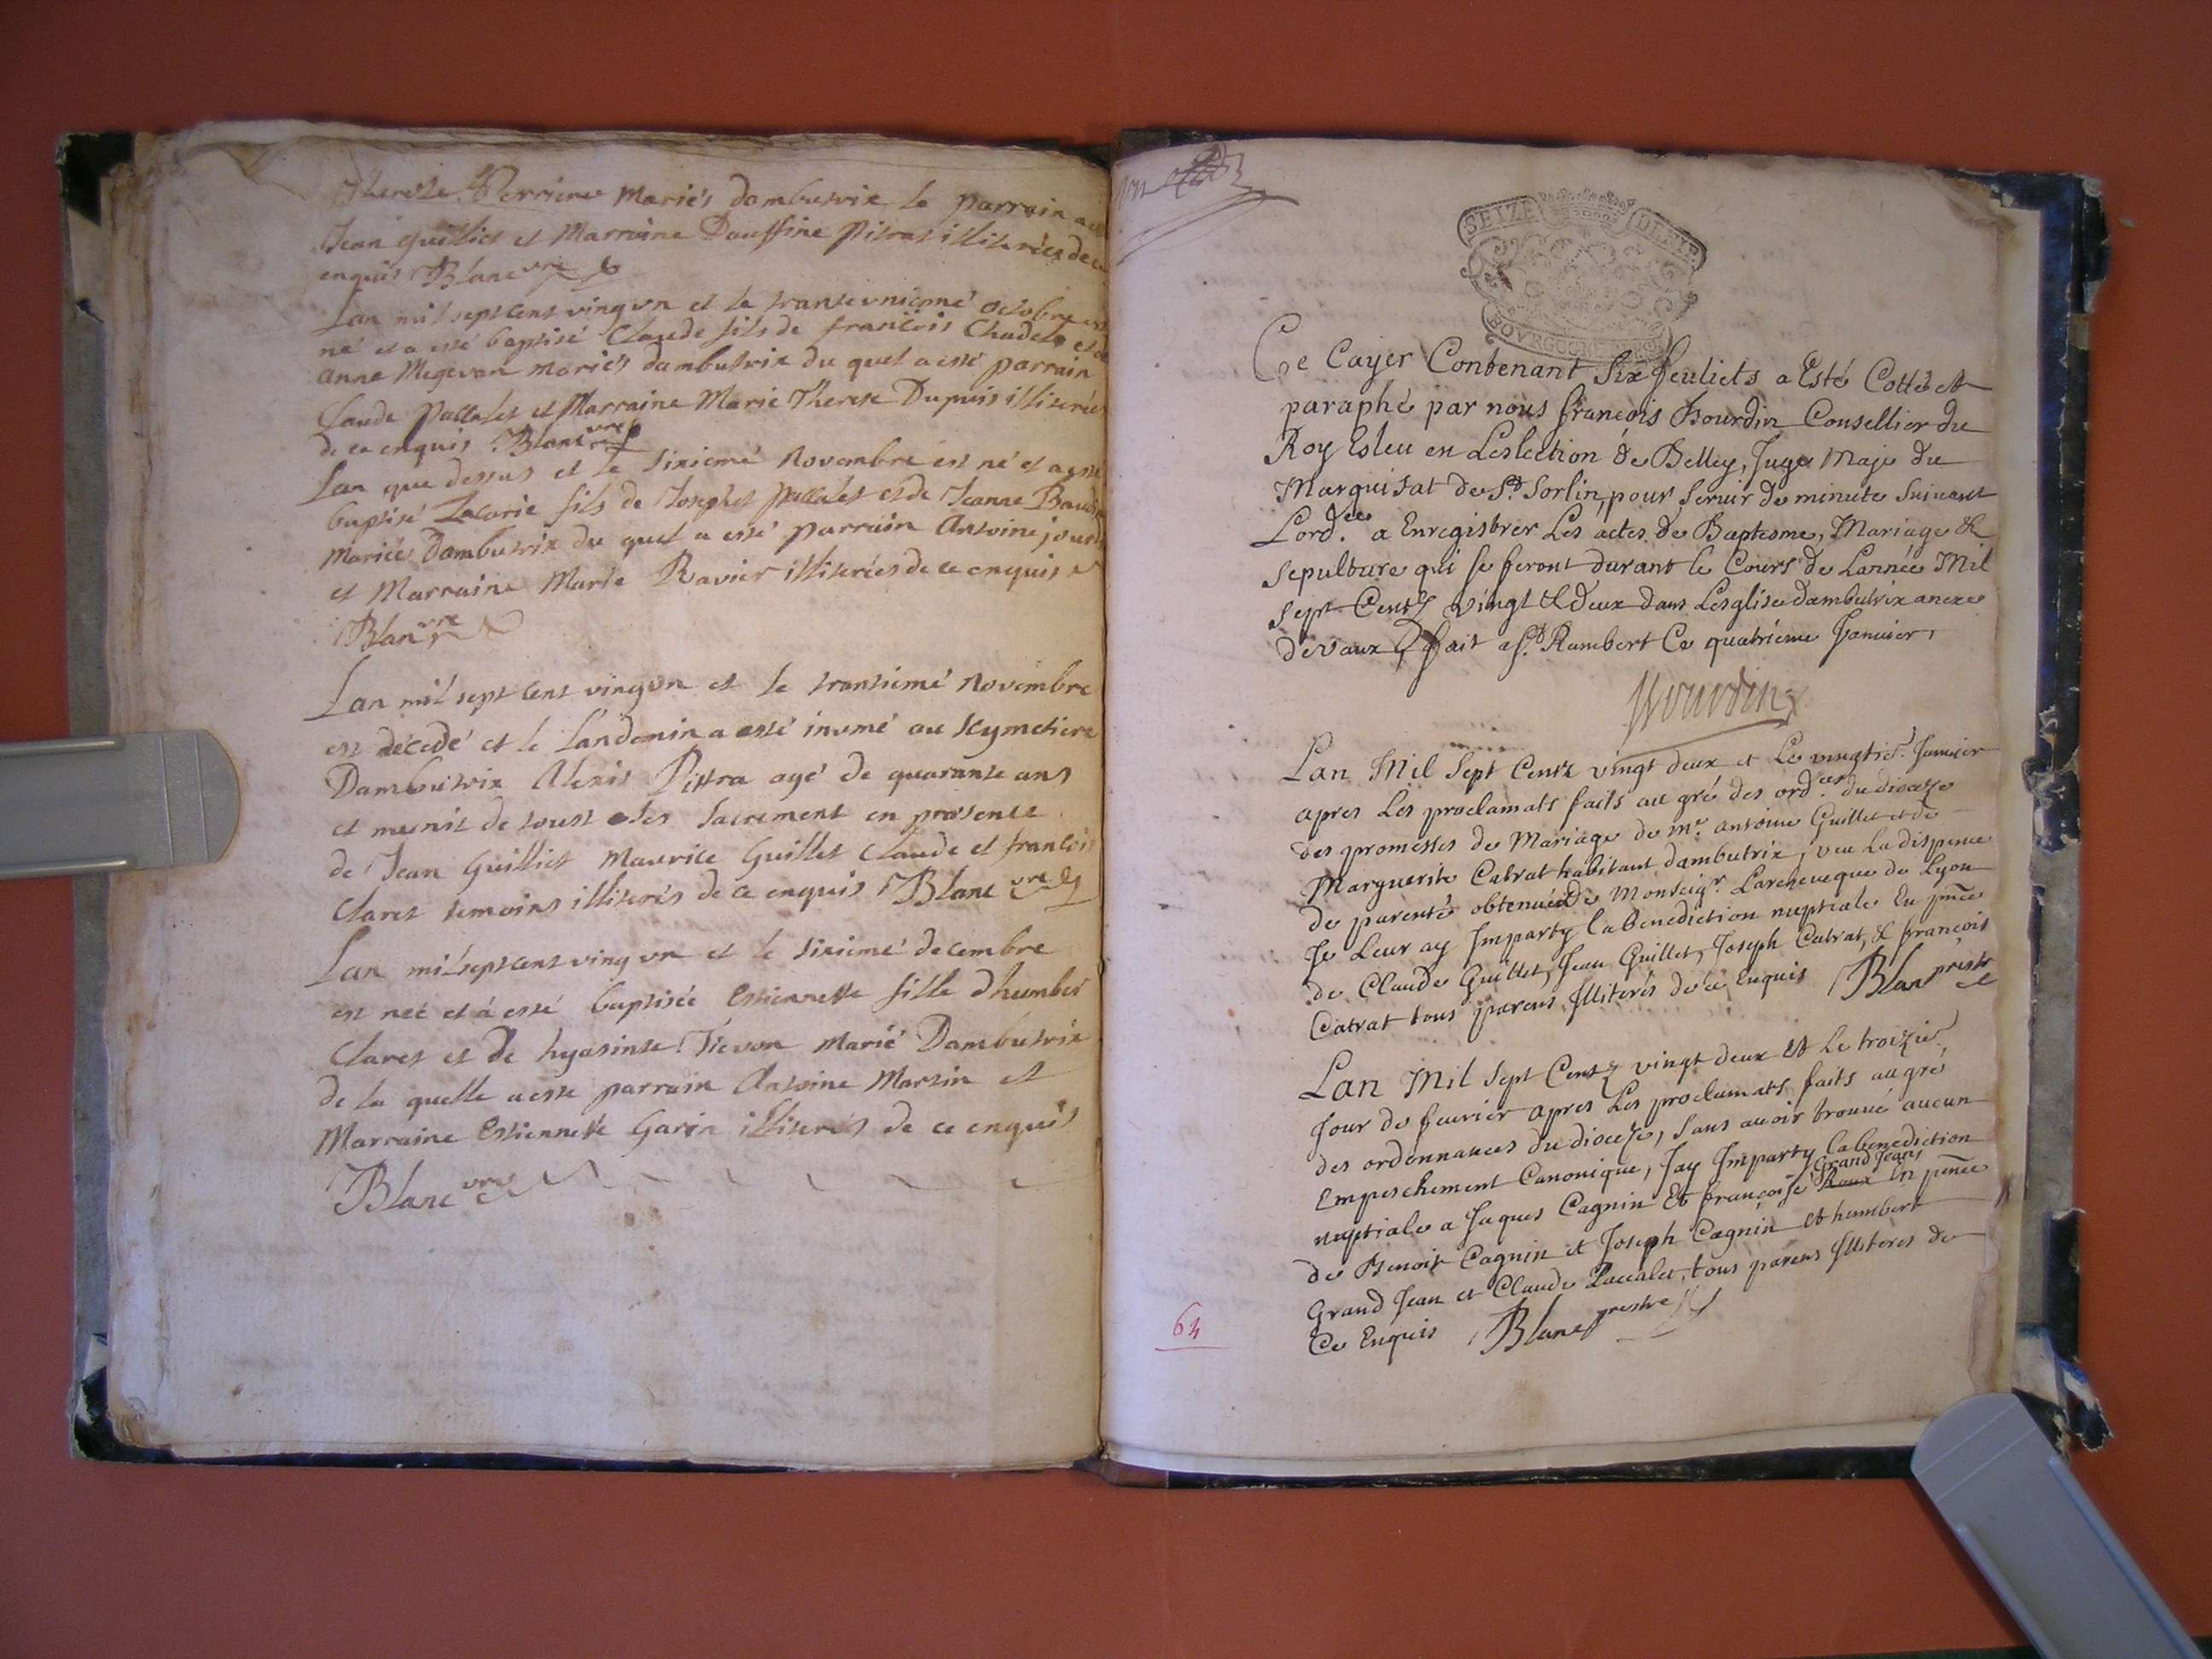 Therese Perriere Mariés dambutrix le parrain a
Jean Guilliet et Marraine Dauffine Pitrat illiterées de ce
enquis Blanc vre
Lan mil sept cent vingun et le tranteuniemé octobre est
né et a esté baptisé Claude fils de francois Chudet et de
anne Megevan mariés dambutrix du quel a esté parrain
Claude pallalet et Marraine Marie Therese Dupuis illiterées
de ce enquis Blanc vre
Lan que dessus et le sixiemé Novembre est né et a esté
baptisé Zacarie fils de Josephet pallalet et de Jeanne
Mariés Dambutrix du quel a esté parrain Antoine
et Marraine Marie Ravier illiterées de ce enquis
Blan vre
Lan mil sept cent vingun et le trantiemé Novembre
est décedé et le landemin a esté inumé au scymetiere
Dambutrix Alexis Pittra agé de quarante ans
et meunit de toust ses sacrement en presence
de Jean Guilliet Maurice Guillet Claude et francois
Claret temoins illiterés de ce enquis Blanc vre
Lan mil sept cent vingun et le sixiemé decembre
est neé et á esté baptisée Estiennette fille dhumber
Claret et de hyasinte Tievon Marié Dambutrix
de la quelle a este parrain Antoine Martin et
Marraine Estiennette Garin illiterés de ce enquis
Blanc vre
SEIZE DENIE
BOVRGOGNE
Ce Cayer Contenant Six feuliets a Esté Cotté et
paraphé par nous francois Bourdin Conseiller du
Roy Esleu en Leslection de Belley, Juge Maje du
Marquisat de St. Sorlin, pour seruir de minute suiuant
Lord.ce a Enregistrer Les actes de Baptesme, Mariage &
Sepulture qui se feront durant le Cours de Lannée Mil
Sept Centz vingt & deux dans Lesglise dambutrix anexe
de vaux fait a St. Rambert Ce quatriéme Januier,
Bourdin
Lan Mil Sept Centz vingt deux et Le vingtie. Januier
apres Les proclamats faits au gré des ord.ces du dioceze
des promesses de Mariage de mr. antoine Guillet et de
Marguerite Catrat habitant dambutrix, veu La dispence
de parenté obtenüe de Monseigr. Larcheueque de Lyon
Je Leur ay Imparty la Benediction nuptiale En pnce
de Claude Guillet, Jean Guillet, Joseph Catrat, & francois
Catrat tous parens Illiterés de ce Enquis Blan prestre
Lan Mil Sept Centz vingt deux et Le troizie.
Jour de feurier apres Les proclamats faits au gré
des ordonnances du dioceze, sans auoir trouué aucun
Empeschement Canonique, Jay Imparty la benediction
Grand Jean
nuptiale a Jaques Cagnin Et francoise Roux En pnce
de Benoit Cagnin et Joseph Cagnin et humbert
Grand Jean et Claude Paccalet, tous parens Illiterés de
Ce Enquis Blanc prestre
64